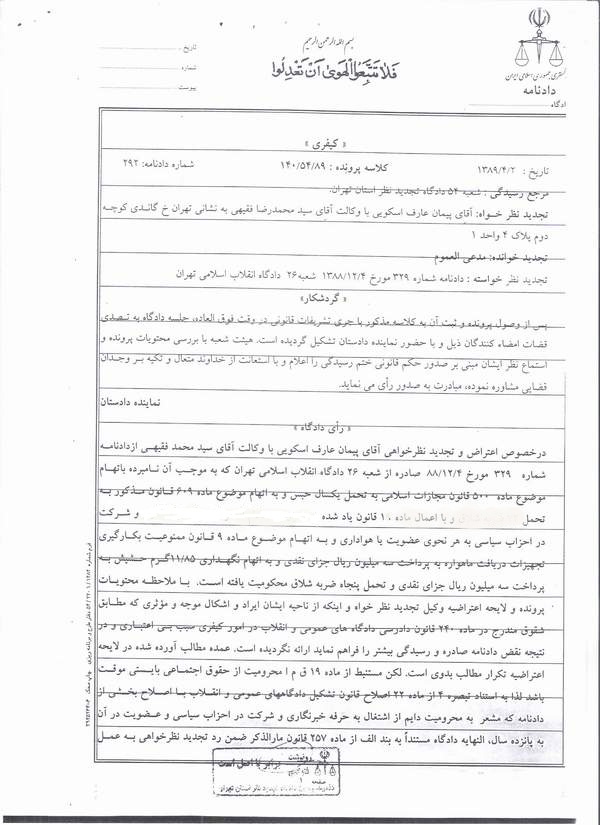 بسم الله الرحمن الرحیم
فلا تتبعوا الهوی ان تعدلوا
تاریخ
شماره
پیوست
دادگستری جمهوری اسلامی ایران
دادنامه
« کیفری »
تاریخ : ۱۳۸۹/۴/۲ کلاسه پرونده : ۱۴۰/۵۴/۸۹ شماره دادنامه: ۲۹۲
مرجع رسیدگی : شعبه ۵۴ دادگاه تجدید نظر استان تهران.
تجدید نظر خـواه: آقای پیمان عارف اسکویی با وکالت آقای سید محمدرضا فقیهی به نشانی تهران خ گاندی کوچه
دوم پلاک ۴ واحد ۱
تجدید خوانده: مدعی العموم
تجدید نظر خواسته : دادنامه شماره ۳۲۹ مورخ ۱۳۸۸/۱۲/۴ شعبه۲۶ دادگاه انقلاب اسلامی تهران
« گردشکار»
پس از وصول پرونده و ثبت آن به کلاسه مذکور با جری تشریفات قانونی در وقت فوق العاده، جلسه دادگاه به تصدی
قضات امضاء کنندگان ذیل و با حضور نماینده دادستان تشکیل گردیده است. هیئت شعبه با بررسی محتویات پرونده و
استماع نظر ایشان مبنی بر صدور حکم قانونی ختم رسیدگی را اعلام و با استعانت از خداوند متعال و تکیه بر وجدان
قضایی مشاوره نموده، مبادرت به صدور رأی می نماید.
نماینده دادستان
« رأی دادگاه »
درخصوص اعتراض و تجدید نظرخواهی آقای پیمان عارف اسکویی با وکالت آقای سید محمد فقیهی ازدادنامه
شماره ۳۲۹ مورخ ۸۸/۱۲/۴ صادره از شعبه ۲۶ دادگاه انقلاب اسلامی تهران که به موجب آن نامبرده باتهام
موضوع ماده ۵۰۰ قانون مجازات اسلامی به تحمل یکسال حبس و به اتهام موضوع ماده ۶۰۹ قانون مذکور به
تحمل و با اعمال ماده ۱۰ قانون یاد شده و شرکت
در احزاب سیاسی به هر نحوی عضویت یا هواداری و به اتهام موضوع ماده ۹ قانون ممنوعیت بکارگیری
تجهیزات دریافت ماهواره به پرداخت سه میلیون ریال جزای نقدی و به اتهام نگهداری ۱۱/۸۵گرم حشیش به
پرداخت سه میلیون ریال جزای نقدی و تحمل پنجاه ضربه شلاق محکومیت یافته است. با ملاحظه محتویات
پرونده و لایحه اعتراضیه وکیل تجدید نظر خواه و اینکه از ناحیه ایشان ایراد و اشکال موجه و مؤثری که مطابق
شقوق مندرج در ماده ۲۴۰ قانون دادرسی دادگاه های عمومی و انقلاب در امور کیفری سبب بی اعتباری و در
نتیجه نقض دادنامه صادره و رسیدگی بیشتر را فراهم نماید ارائه نگردیده است. عمده مطالب آورده شده در لایحه
اعتراضیه تکرار مطالب بدوی است. لکن مستنبط از ماده ۱۹ ق م ا محرومیت از حقوق اجتماعی بایستی موقت
باشد لذا به استناد تبصره ۴ از ماده ۲۲ اصلاح قانون تشکیل دادگاههای عمومی و انقلاب با اصلاح بخشی از
دادنامه که مشعر به محرومیت دایم از اشتغال به حرفه خبرنگاری و شرکت در احزاب سیاسی و عضویت در آن
به پانزده سال، النهایه دادگاه مستنداً به بند الف از ماده ۲۵۷ قانون مارالذکر ضمن رد تجدید نظرخواهی به عمل
رونوشت
برابر با اصل است
صفحه ۱